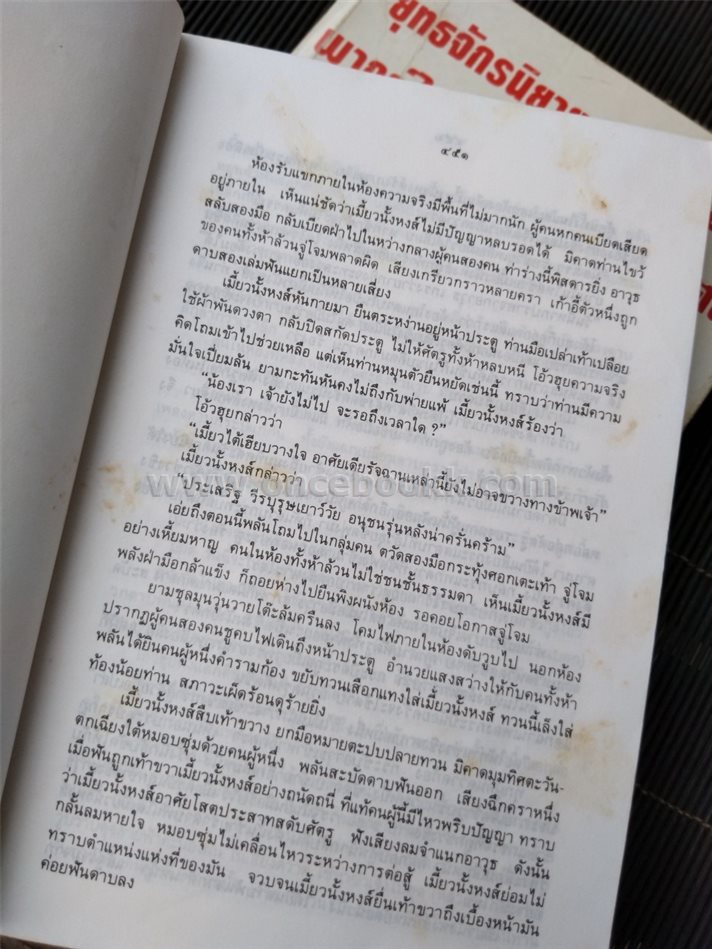 ยุทธจักรนิยาย
๔๕๑
ห้องรับแขกภายในห้องความจริงมีพื้นที่ไม่มากนัก ผู้คนหกคนเบียดเสียด
อยู่ภายใน เห็นแน่ชัดว่าเมี้ยวนั้งหงส์ไม่มีปัญญาหลบรอดได้ มิคาดท่านไขว้
สลับสองมือ กลับเบียดฝ่าไปในหว่างกลางผู้คนสองคน ท่าร่างนี้พิสดารยิ่ง อาวุธ
ของคนทั้งห้าล้วนจู่โจมพลาดผิด เสียงเกรียวกราวหลายครา เก้าอี้ตัวหนึ่งถูก
ดาบสองเล่มฟันแยกเป็นหลายเสี่ยง
เมี้ยวนั้งหงส์หันกายมา ยืนตระหง่านอยู่หน้าประตู ท่านมือเปล่าเท้าเปลือย
ใช้ผ้าพันดวงตา กลับปิดสกัดประตู ไม่ให้ศัตรูทั้งห้าหลบหนี โอ้วฮุยความจริง
คิดโถมเข้าไปช่วยเหลือ แต่เห็นท่านหมุนตัวยืนหยัดเช่นนี้ ทราบว่าท่านมีความ
มั่นใจเปี่ยมล้น ยามกะทันหันคงไม่ถึงกับพ่ายแพ้ เมี้ยวนั้งหงส์ร้องว่า
“น้องเรา เจ้ายังไม่ไป จะรอถึงเวลาใด ?”
โอ้วฮุยกล่าวว่า
“เมี้ยวไต้เฮียบวางใจ อาศัยเดียรัจฉานเหล่านี้ยังไม่อาจขวางทางข้าพเจ้า”
เมี้ยวนั้งหงส์กล่าวว่า
“ประเสริฐ วีรบุรุษเยาว์วัย อนุชนรุ่นหลังน่าครั่นคร้าม”
เอ่ยถึงตอนนี้พลันโถมไปในกลุ่มคน ตวัดสองมือกระทุ้งศอกเตะเท้า จู่โจม
อย่างเหี้ยมหาญ คนในห้องทั้งห้าล้วนไม่ใช่ชนชั้นธรรมดา เห็นเมี้ยวนั้งหงส์มี
พลังฝ่ามือกล้าแข็ง ก็ถอยห่างไปยืนพิงผนังห้อง รอคอยโอกาสจู่โจม
ยามชุลมุนวุ่นวายโต๊ะล้มครืนลง โคมไฟภายในห้องดับวูบไป นอกห้อง
ปรากฏผู้คนสองคนชูคบไฟเดินถึงหน้าประตู อำนวยแสงสว่างให้กับคนทั้งห้า
พลันได้ยินคนผู้หนึ่งคำรามก้อง ขยับทวนเสือกแทงใส่เมี้ยวนั้งหงส์ ทวนนี้เล็งใส่
ท้องน้อยท่าน สภาวะเผ็ดร้อนดุร้ายยิ่ง
เมี้ยวนั้งหงส์สืบเท้าขวาง ยกมือหมายตะปบปลายทวน มิคาดมุมทิศตะวัน-
ตกเฉียงใต้หมอบซุ่มด้วยคนผู้หนึ่ง พลันสะบัดดาบฟันออก เสียงฉึกคราหนึ่ง
เมื่อฟันถูกเท้าขวาเมี้ยวนั้งหงส์อย่างถนัดถนี่ ที่แท้คนผู้นี้มีไหวพริบปัญญา ทราบ
ว่าเมี้ยวนั้งหงส์อาศัยโสตประสาทสดับศัตรู ฟังเสียงลมจำแนกอาวุธ ดังนั้น
กลั้นลมหายใจ หมอบซุ่มไม่เคลื่อนไหวระหว่างการต่อสู้ เมี้ยวนั้งหงส์ย่อมไม่
ทราบตำแหน่งแห่งที่ของมัน จวบจนเมี้ยวนั้งหงส์ยื่นเท้าขวาถึงเบื้องหน้ามัน
ค่อยฟันดาบลง